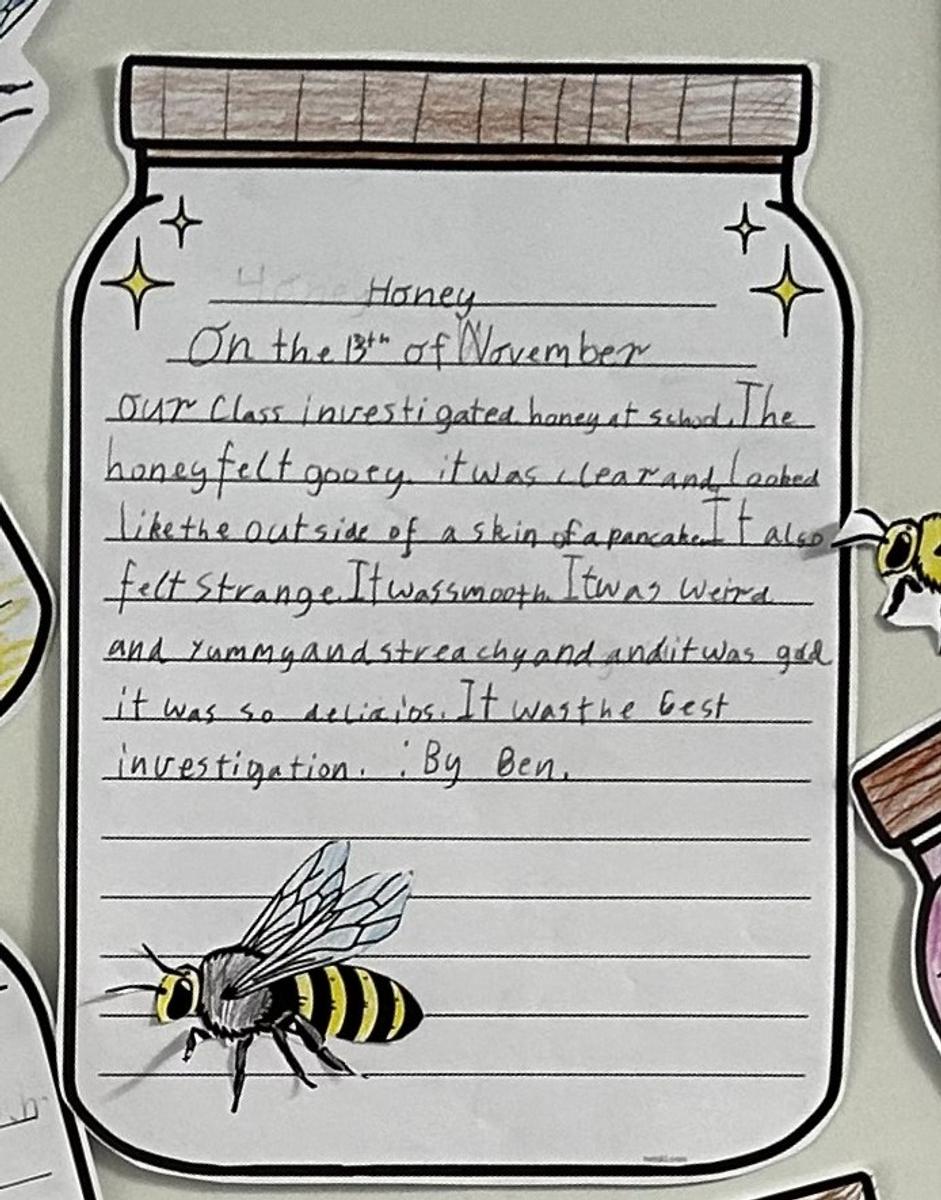 Honey
On the 13th of November
our class investigated honey at school. The
honey felt gooey. it was clear and Looked
like the outside of a skin of a pancake. It also
felt strange. It was smooth. It was weird
and yummy and streachy and and it was god
it was so deliciios. It was the best
investigation. : By Ben.